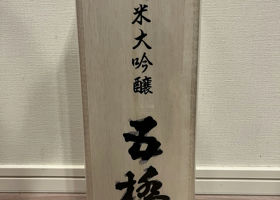 米大吟醸
五橋